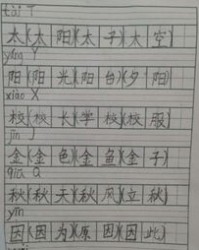 tài T
太(太阳)(太子)(太空)
yáng Y
阳(阳光)(阳台)(夕阳)
xiào X
校(校长)(学校)(校服)
jīn J
金(金色)(金鱼)(金子)
qiū Q
秋(秋天)(秋风)(立秋)
yīn
因(因为)(原因)(因此)